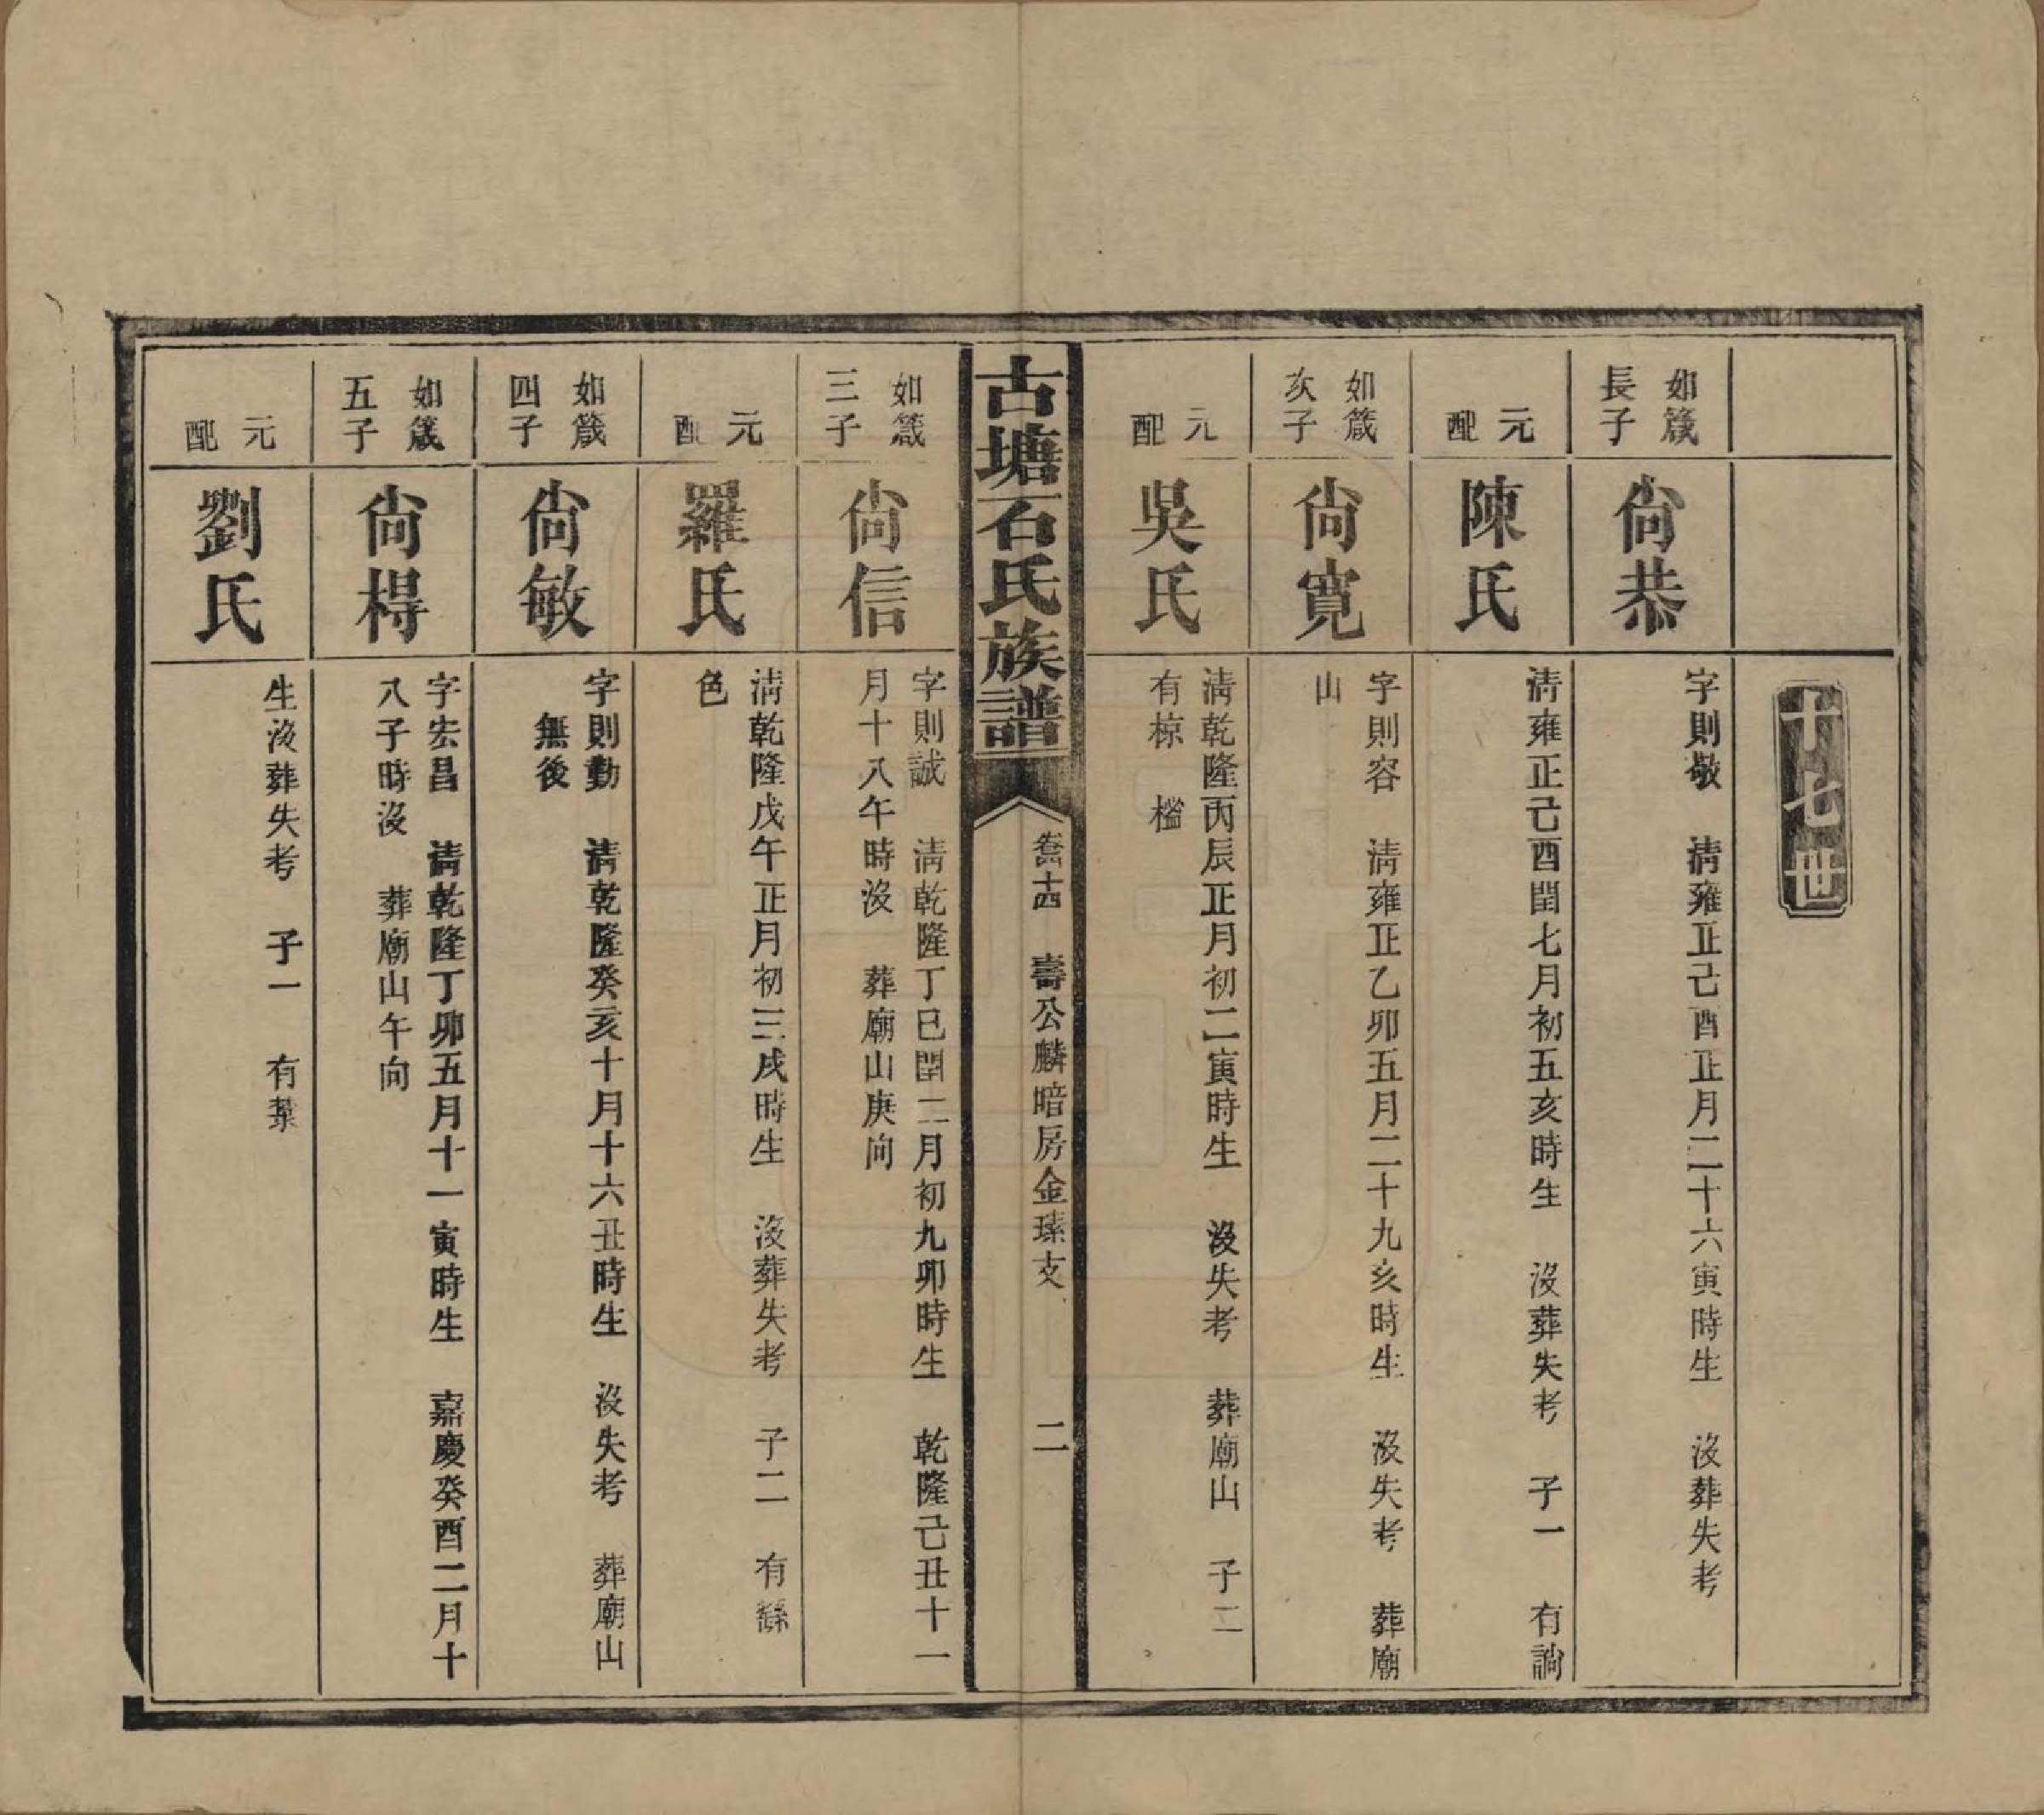 十七世
如箴
長子
尙恭
字則敬　淸雍正己酉正月二十六寅時生　沒葬失考
元配
陳氏
淸雍正己酉閏七月初五亥時生　沒葬失考　子一　有詾
如箴
次子
尙寬
字則容　淸雍正乙卯五月二十九亥時生　沒失考　葬廟
山
元配
吳氏
淸乾隆丙辰正月初二寅時生　沒失考　葬廟山　子二
有椋　檻
古塘石氏族譜
卷十四　壽公麟暗房金瑧支　二
如箴
三子
尙信
字則誠　淸乾隆丁巳閏二月初九卯時生　乾隆己丑十一
月十八午時沒　葬廟山庚向
元配
羅氏
淸乾隆戊午正月初三戌時生　沒葬失考　子二　有繇
色
如箴
四子
尙敏
字則勤　淸乾隆癸亥十月十六丑時生　沒失考　葬廟山
無後
如箴
五子
尙棏
字宏昌　淸乾隆丁卯五月十一寅時生　嘉慶癸酉二月十
八子時沒　葬廟山午向
元配
劉氏
生沒葬失考　子一　有